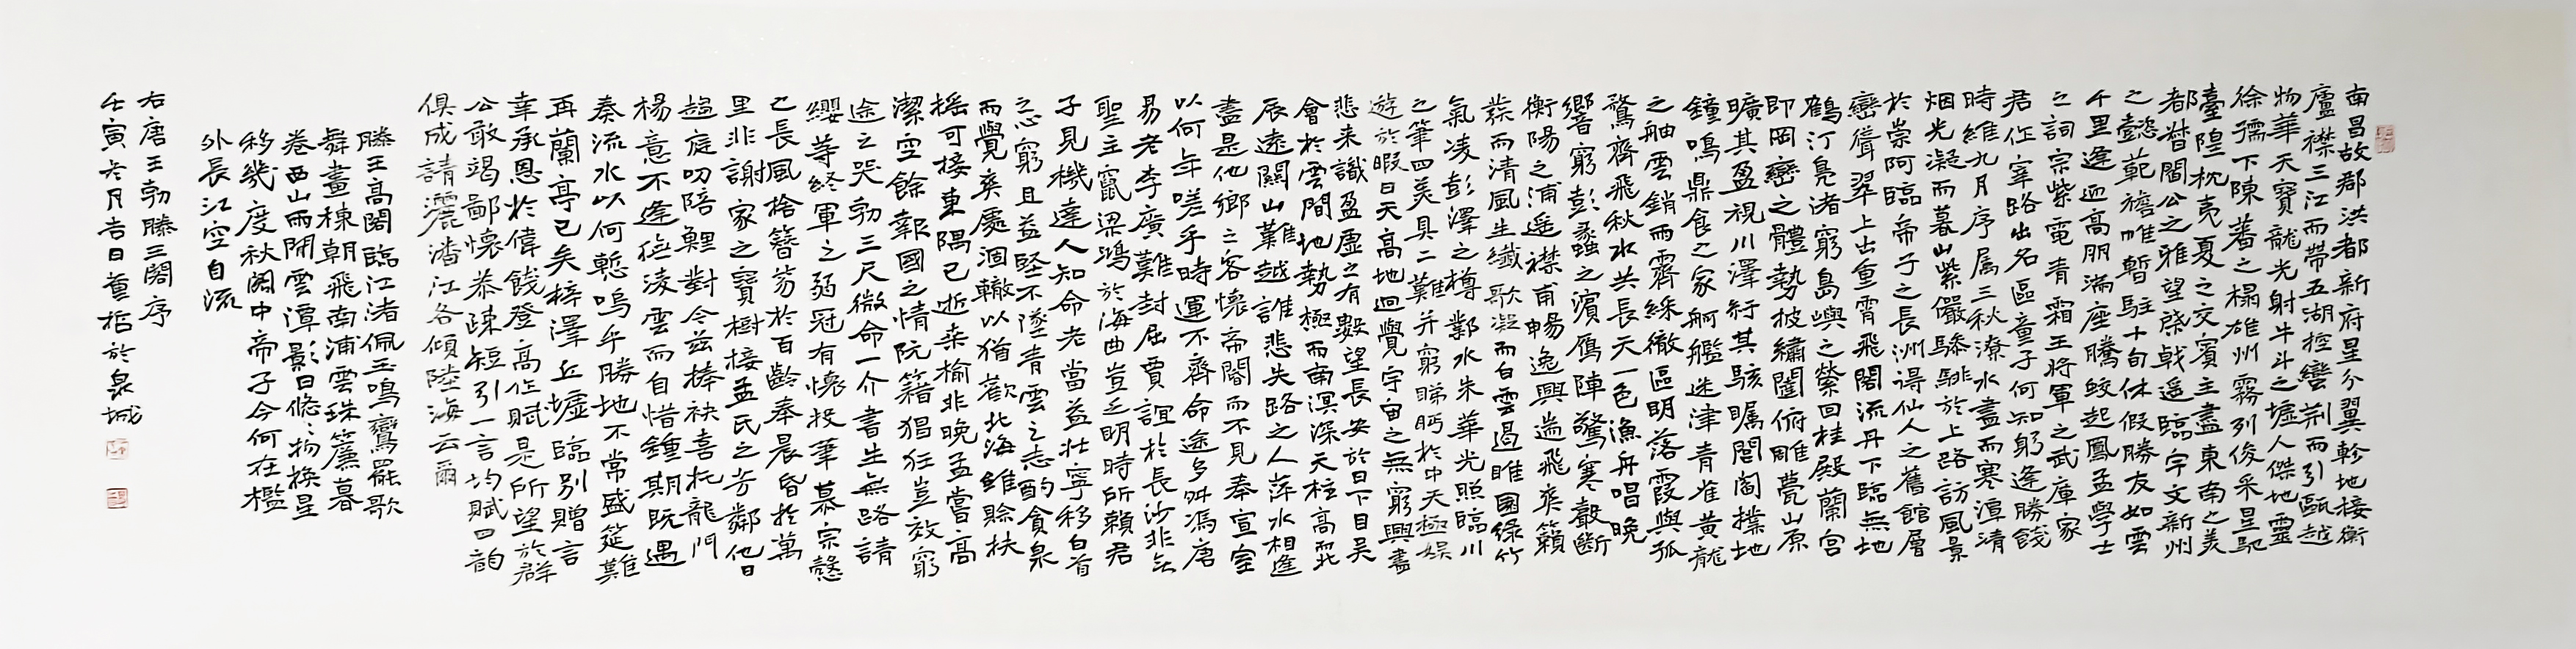 南昌故郡洪都新府星分翼軫地接衡
廬襟三江而帶五湖控蠻荊而引甌越
物華天寶龍光射牛斗之墟人傑地靈
徐孺下陳蕃之榻雄州霧列俊采星馳
臺隍枕夷夏之交賓主盡東南之美
都督閻公之雅望棨戟遙臨宇文新州
之懿範襜帷暫駐十旬休假勝友如雲
千里逢迎高朋滿座騰蛟起鳳孟學士
之詞宗紫電青霜王將軍之武庫家
君作宰路出名區童子何知躬逢勝餞
時維九月序属三秋潦水盡而寒潭清
烟光凝而暮山紫儼驂騑於上路訪風景
於崇阿臨帝子之長洲得仙人之舊館層
巒聳翠上出重霄飛閣流丹下臨無地
鶴汀鳧渚窮島嶼之縈回桂殿蘭宮
即岡巒之體勢披繡闥俯雕甍山原
曠其盈視川澤紆其駭矚閭閻撲地
鐘鳴鼎食之家舸艦迷津青雀黃龍
之舳雲銷雨霽綵徹區明落霞與孤
鶩齊飛秋水共長天一色漁舟唱晚
響窮彭蠡之濱雁陣驚寒聲斷
衡陽之浦遙襟甫暢逸興遄飛爽籟
發而清風生纖歌凝而白雲遏睢園綠竹
氣凌彭澤之樽鄴水朱華光照臨川
之筆四美具二難并窮睇眄於中天極娛
遊於暇日天高地迴覺宇宙之無窮興盡
悲来識盈虛之有數望長安於日下目吳
會於雲間地勢極而南溟深天柱高而北
辰遠關山難越誰悲失路之人萍水相逢
盡是他鄉之客懷帝閽而不見奉宣室
以何年嗟乎時運不齊命途多舛馮唐
易老李廣難封屈賈誼於長沙非無
聖主竄梁鴻於海曲豈乏明時所賴君
子見機達人知命老當益壯寧移白首
之心窮且益堅不墜青雲之志酌貪泉
而覺爽處涸轍以猶歡北海雖賒扶
搖可接東隅已逝桑榆非晚孟嘗高
潔空餘報國之情阮籍猖狂豈效窮
途之哭勃三尺微命一介書生無路請
纓等終軍之弱冠有懷投筆慕宗愨
之長風捨簪笏於百齡奉晨昏於萬
里非謝家之寶樹接孟氏之芳鄰他日
趨庭叨陪鯉對今茲捧袂喜托龍門
楊意不逢撫淩雲而自惜鍾期既遇
奏流水以何慙嗚乎勝地不常盛筵難
再蘭亭已矣梓澤丘墟臨別贈言
幸承恩於偉餞登高作賦是所望於群
公敢竭鄙懷恭疎短引一言均賦四韻
俱成請灑潘江各傾陸海云爾
滕王高閣臨江渚佩玉鳴鸞罷歌
舞畫棟朝飛南浦雲珠簾暮
卷西山雨閒雲潭影日悠〻物換星
移幾度秋閣中帝子今何在檻
外長江空自流
右唐王勃滕王閣序
壬寅冬月吉日董栝於泉城